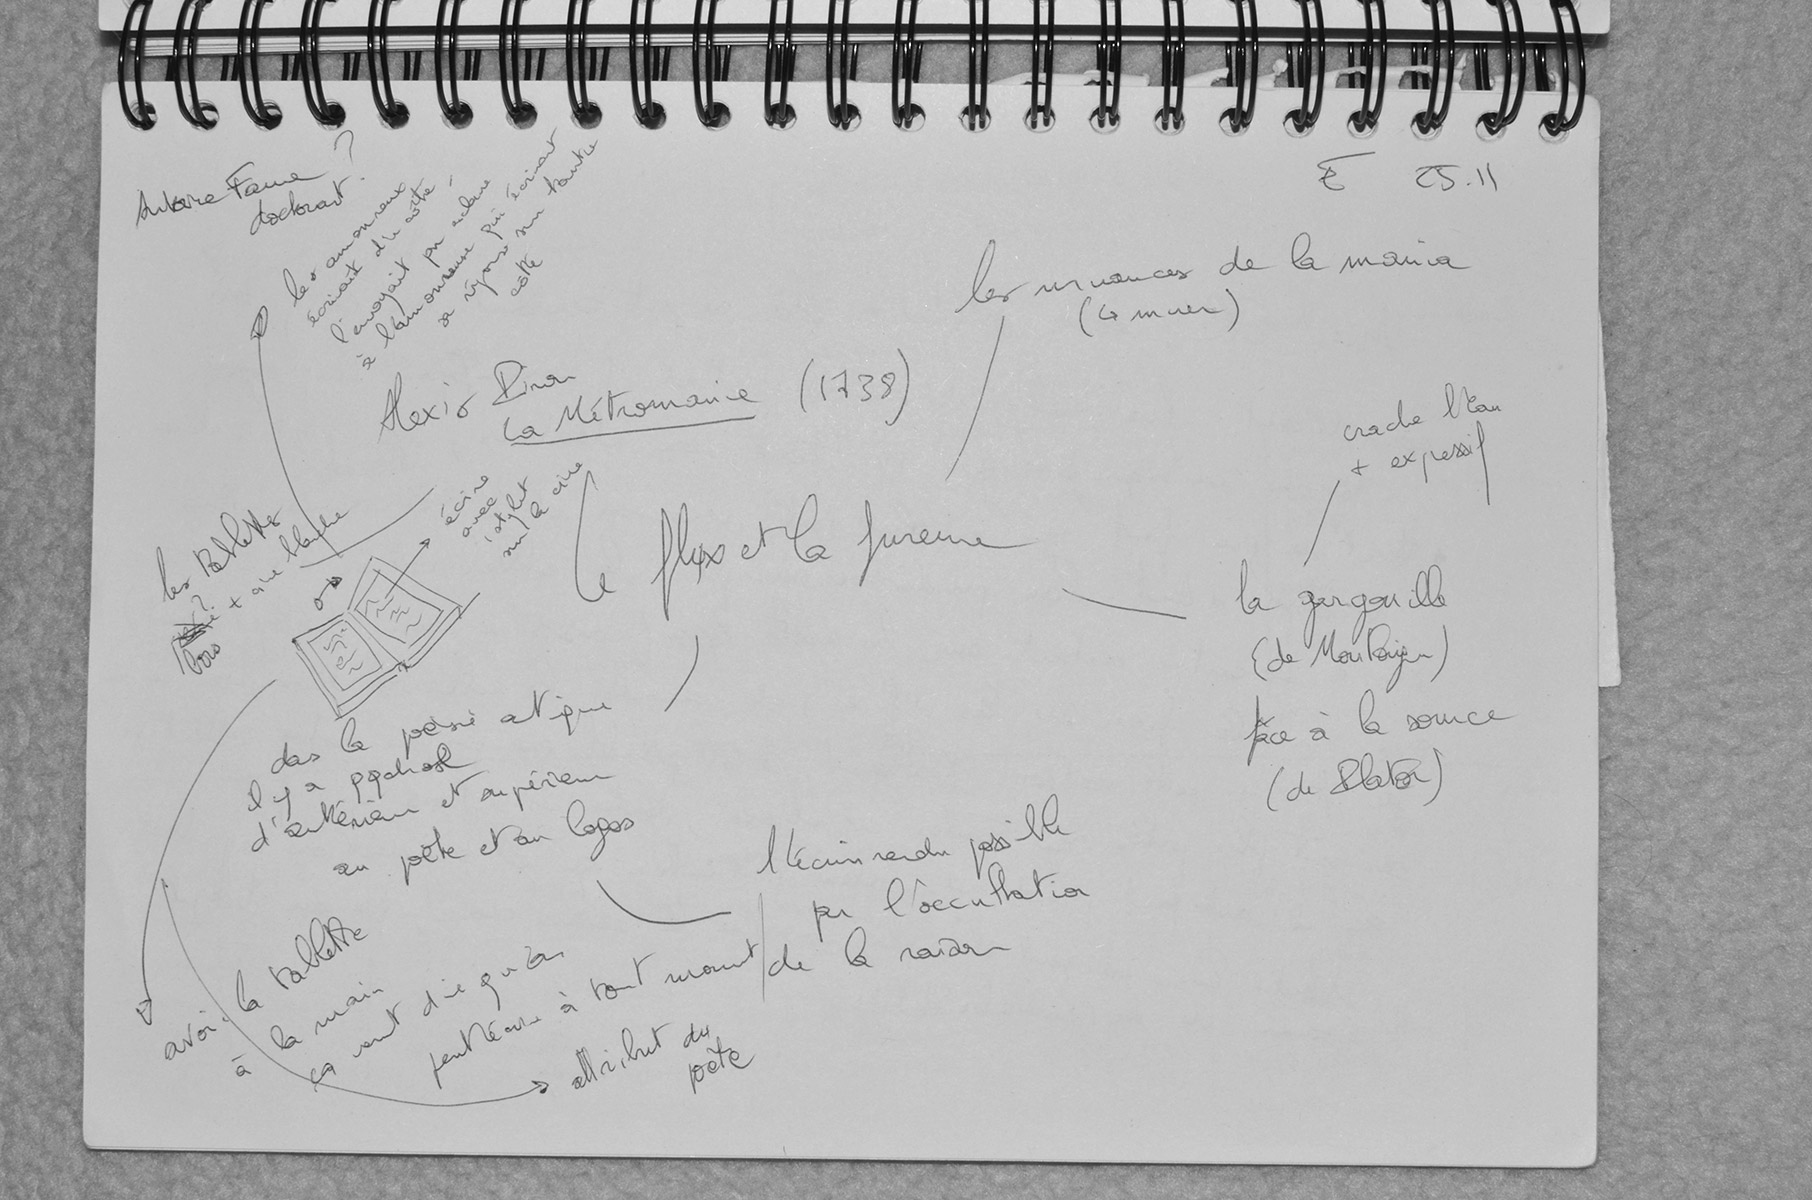 doctorant ?
25.11
les amoureux
écrivait d'un côté,
l'envoyait par esclave
à l'amoureuse qui écrivait
sa réponse sur l'autre
côté
les nuances de la mania
(↳ muer)
Alexis Piron
La Métromanie (1738)
crache l'eau
+ expressif
les tablettes
bois + cire
écrire
avec
stylet
sur la cire
Le flux et la fureur
la gargouille
(de Montaigne)
face à la source
(de Platon)
dans la poésie antique
il y a
d'extérieur et supérieur
au poète et au logos
l'écrin rendu possible
par l'occultation
de la raison
avoir la tablette
à la main
ça veut dire qu'on
peut écrire à tout moment
attribut du
poète